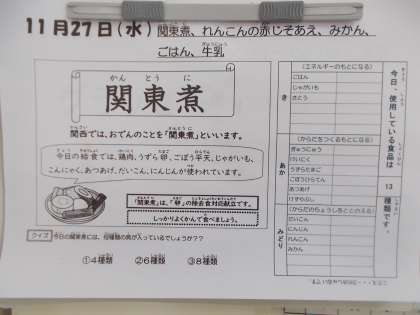 11月27日(水)関東煮、れんこんの赤じそあえ、みかん、
ごはん、牛乳
ぎゅうにゅう
かん とう に
関東煮
関西では、おでんのことを「関東煮」といいます。
今日の給食では、鶏肉、うずら卵、ごぼう平天、じゃがいも、
こんにゃく、あつあげ、だいこん、にんじんが使われています。
「関東煮」は、「卵」の除去食対応献立です。
しっかりよくかんで食べましょう。
クイズ 今日の関東煮には、何種類の具が入っているでしょうか??
①4種類 ②6種類 ③8種類
今日、使用している食品は
13
種類です。
き
(エネルギーのもとになる)
ごはん
じゃがいも
さとう
あか
(からだをつくるもとになる)
ぎゅうにゅう
けいにく
うずらたまご
ごぼうひらてん
あつあげ
けずりぶし
みどり
(からだのちょうしをととのえる)
だいこん
にんじん
れんこん
みかん